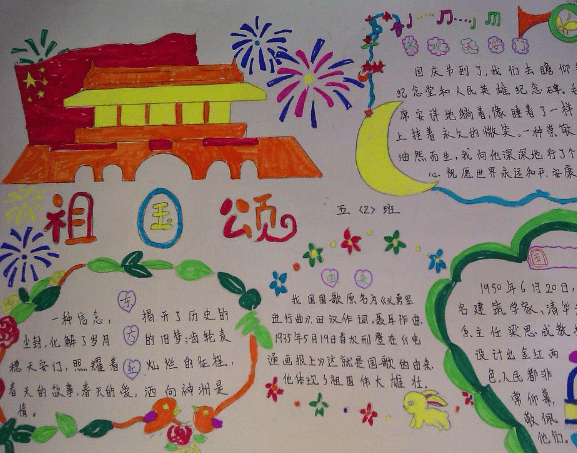 祖国颂
五〈2〉班
国庆节到了,我们去瞻仰
纪念堂和人民英雄纪念碑,毛
席安详地躺着,像睡着了一样
上挂着永久的微笑,一种崇敬
油然而生,我向他深深地行了个
心祝愿世界永远和平,安康
一种信念,
揭开了历史的
尘封,化解了岁月
的旧梦;齿轮表
穗天安门,照耀着
灿烂的征程,
春天的故事,春天的爱,洒向神州是
情。
国歌
我国国歌原名为《义勇军
进行曲》,田汉作词,聂耳作曲
1935年5月19日首次刊登在《电
通画报上》这就是国歌的由来
他体现了祖国伟大雄壮。
1950年6月20日,
名建筑学家,清华
系主任梁思成教
设计出金红两
色,人民都非
常仰慕,
敬佩
他们。